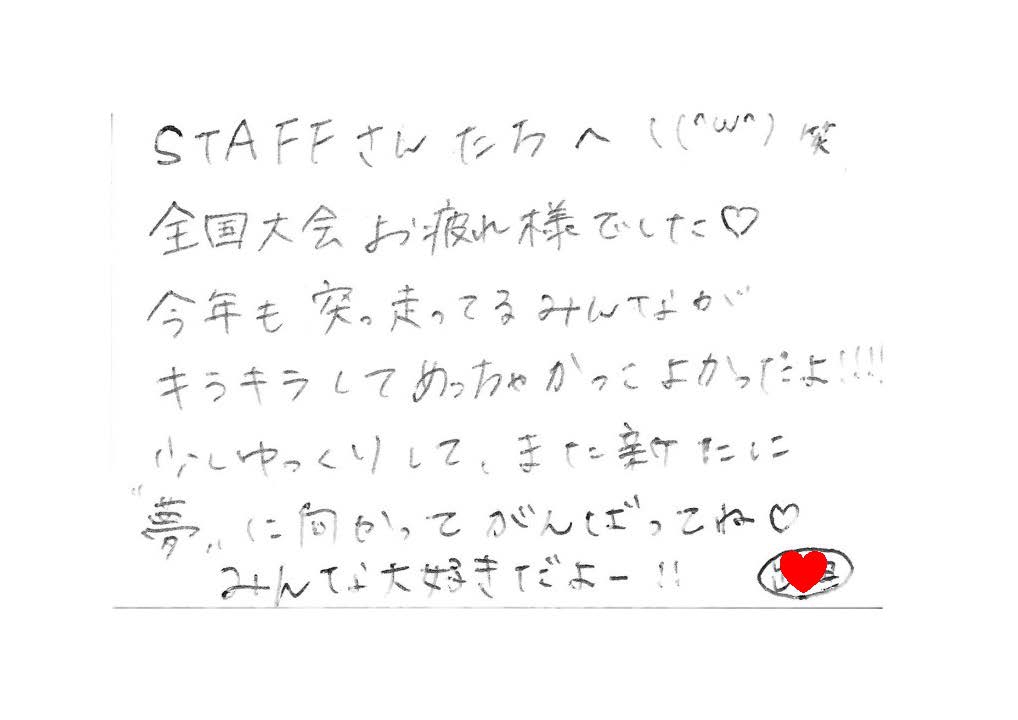 STAFFさんたちへ ((^ω^) 笑
全国大会お疲れ様でした♡
今年も突っ走ってるみんなが
キラキラしてめっちゃかっこよかっただよ!!!!
少しゆっくりして、また新たに
“夢”に向かってがんばってね♡
みんな大好きだよー!!